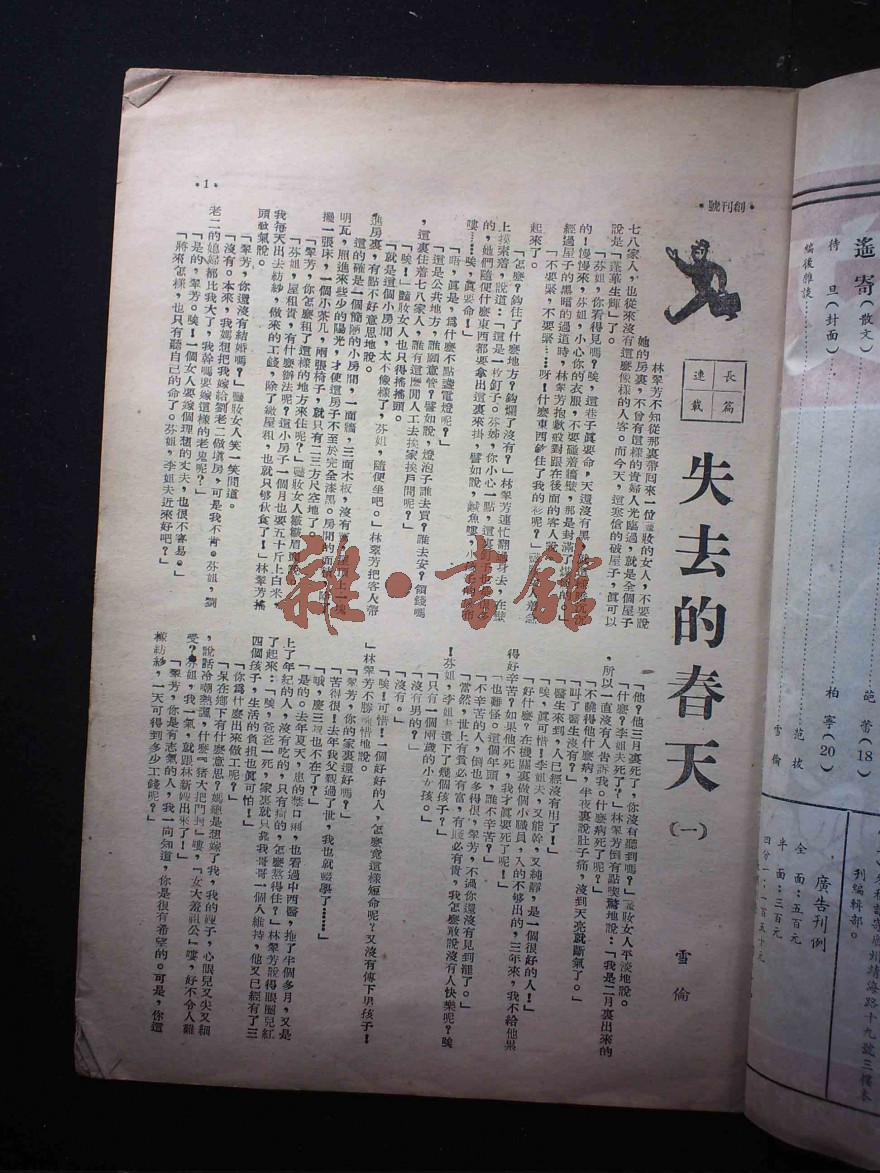 創刊號
長篇連載
失去的春天
(一)
雪倫
林翠芳不知從那裏帶回來一位豔妝的女人，不要說
她的房裏，不曾有這樣的貴婦人光臨過，就是全個屋子
七八家人，也從來沒有這麼像樣的人客。而今天，這寒傖的破屋子，眞可以
說是「蓬蓽生輝」了。
的！慢慢來，芬姐，小心你的衣服，不要碰着牆壁，那是封滿了
經過屋子的黑暗的過道時，林翠芳抱歉般對跟在後面的客人說
「不要緊，不要緊……呀！什麼東西鈎住了我的衫呢？」
起來了。
「怎麼？鈎住了什麼地方？鈎爛了沒有？」林翠芳連忙翻轉身去，在壁
上摸索着，說道：「這是一枚釘子。芬姊，你小心一點，這裏釘子
的，她們隨便什麼東西都要拿出這裏來掛，譬如說，鹹魚嘍，
嘍……唉，眞要命！」
「唔，眞是，爲什麼不點盞電燈呢？」
「這是公共地方，誰願意管？譬如說，燈泡子誰去買？誰去安？領錢嗎
，這裏住着七八家人，誰有這麼閒人工去挨家挨戶問呢？」
「唉！」豔妝女人也只得搖搖頭。
「就是這個小房間，太不像樣了，芬姐，隨便坐吧。」林翠芳把客人帶
進房裏，有點不好意思地說。
這的確是一個簡陋的小房間，一面牆，三面木板，沒有窗，屋頂上一塊
明瓦，照進來些少的陽光，才使這房子不至於完全漆黑。房間的面
擺一張床，一個小茶几，兩張椅子，就只有二三方尺空地了。
「翠芳，你怎麼租了這樣的地方來住呢？」豔妝女人皺皺眉頭
「芬姐，屋租貴，有什麼辦法呢？這小房子一個月也要五十斤上白米，
我每天出去紡紗，做來的工錢，除了繳屋租，也就只够伙食了！」林翠芳搖
頭歎氣說。
「翠芳，你還沒有結婚嗎？」豔妝女人笑一笑問道。
「沒有。本來，我媽想把我嫁給劉老二做塡房，可是我不肯。芬姐，劉
老二的媳婦都比我大了，我幹嗎要嫁這樣的老鬼呢？」
「是的，翠芳。唉！一個女人要嫁個理想的丈夫，也很不容易。」
「將來怎樣，也只有聽自己的命了。芬姐，李姐夫近來好吧？」
「他？他三月裏死了，你沒有聽到嗎？」豔妝女人平淡地說。
「什麼？李姐夫死了？」林翠芳倒有點喫驚地說：「我是二月裏出來的
，所以一直沒有人告訴我。什麼病死了呢？」
「不曉得他什麼病，半夜裏說肚子痛，沒到天亮就斷氣了。」
「叫了醫生沒有？」
「醫生來到，人已經沒有用了！」
「唉，眞可惜！李姐夫，又能幹，又純靜，是一個很好的人！」
「好什麼？在機關裏做個小職員，入的不够出的，三年來，我不給他累
得好辛苦？如果他不死，我才眞要死了呢！」
「也難怪。這個年頭，誰不辛苦？」
「不辛苦的人，倒也多得很，翠芳，不過你還沒有見到罷了。」
「當然，世上有貧必有富，有賤必有貴，我怎麼敢說沒有人快樂呢？唉
！芬姐，李姐夫遺下了幾個孩子？」
「只有一個兩歲的小女孩。」
「沒有男的？」
「沒有。」
「唉！可惜！一個好好的人，怎麼竟這樣短命呢？又沒有傳下男孩子！
」林翠芳不勝惋惜地說。
「翠芳，你的家裏還好嗎？」
「苦得很！去年我父親過了世，我也就輟學了……」
「哦，慶三叔也不在了？」
「是的。去年夏天，患的禁口痢，也看過中西醫，拖了半個多月，又是
上了年紀的人，沒有吃的，只有痾的，怎麼熬得住？」林翠芳說得眼圈兒紅
了起來：「唉，爸爸一死，家裏就只靠我哥哥一個人維持，他又已經有了三
四個孩子，生活的負担也眞可怕！」
「你爲什麼出來做工呢？」
「呆在鄉下有什麼意思？媽總是想嫁了我，我的嫂子，心眼兒又尖又細
，說話冷嘲熱諷，什麼『豬大把門』嘍，『女大羞祖公』嘍，好不令人難
受？芬姐，我一氣，就跟林新嫂出來了！」
「翠芳，你是有志氣的人，我一向知道，你是很有希望的。可是，你這
樣紡紗，一天可得到多少工錢呢？」
·1·
雜·書館
遙寄(散文)
葩蕾(18)
待旦(封面)
柏寧(20)
范拔
編後雜談
雪倫
廣州靖海路十九號三樓本
刊編輯部。
廣告刊例
全面：五百元
半面：三百元
四分一：一百五十元